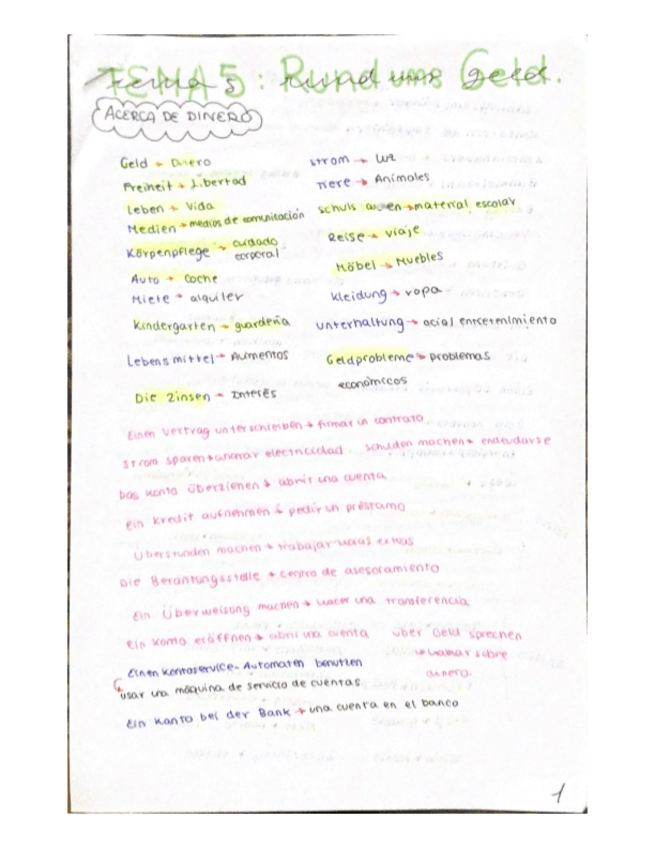 TEMA 5: Rund ums Geld.
Tema 5 rund ums geld
ACERCA DE DINERO
Geld → Dinero
Freiheit → Libertad
Leben → Vida
Medien → medios de comunicación
Körpenpflege → cuidado corporal
Auto → Coche
Miete → alquiler
Kindergarten → guardería
Lebensmittel → Alimentos
Die Zinsen → Interés
Strom → luz
Tiere → Animales
schuls achen → material escolar
Reise → viaje
Möbel → Muebles
kleidung → ropa
unterhaltung → ocio/entretenimiento
Geldprobleme → problemas
económicos
Einen Vertrag unterschreiben → firmar un contrato
Strom sparen → ahorrar electricidad schulden machen → endeudarse
Das Konto überziehen → abrir una cuenta
Ein kredit aufnehmen → pedir un préstamo
Überstunden machen → trabajar horas extras
Die Berantungsstelle → centro de asesoramiento
Ein Überweisung machen → hacer una transferencia
Ein Konto eröffnen → abrir una cuenta über Geld sprechen
→ hablar sobre
dinero.
Einen Kontoservice-Automaten benutzen
usar una máquina de servicio de cuentas.
Ein Konto bei der Bank → una cuenta en el banco
1